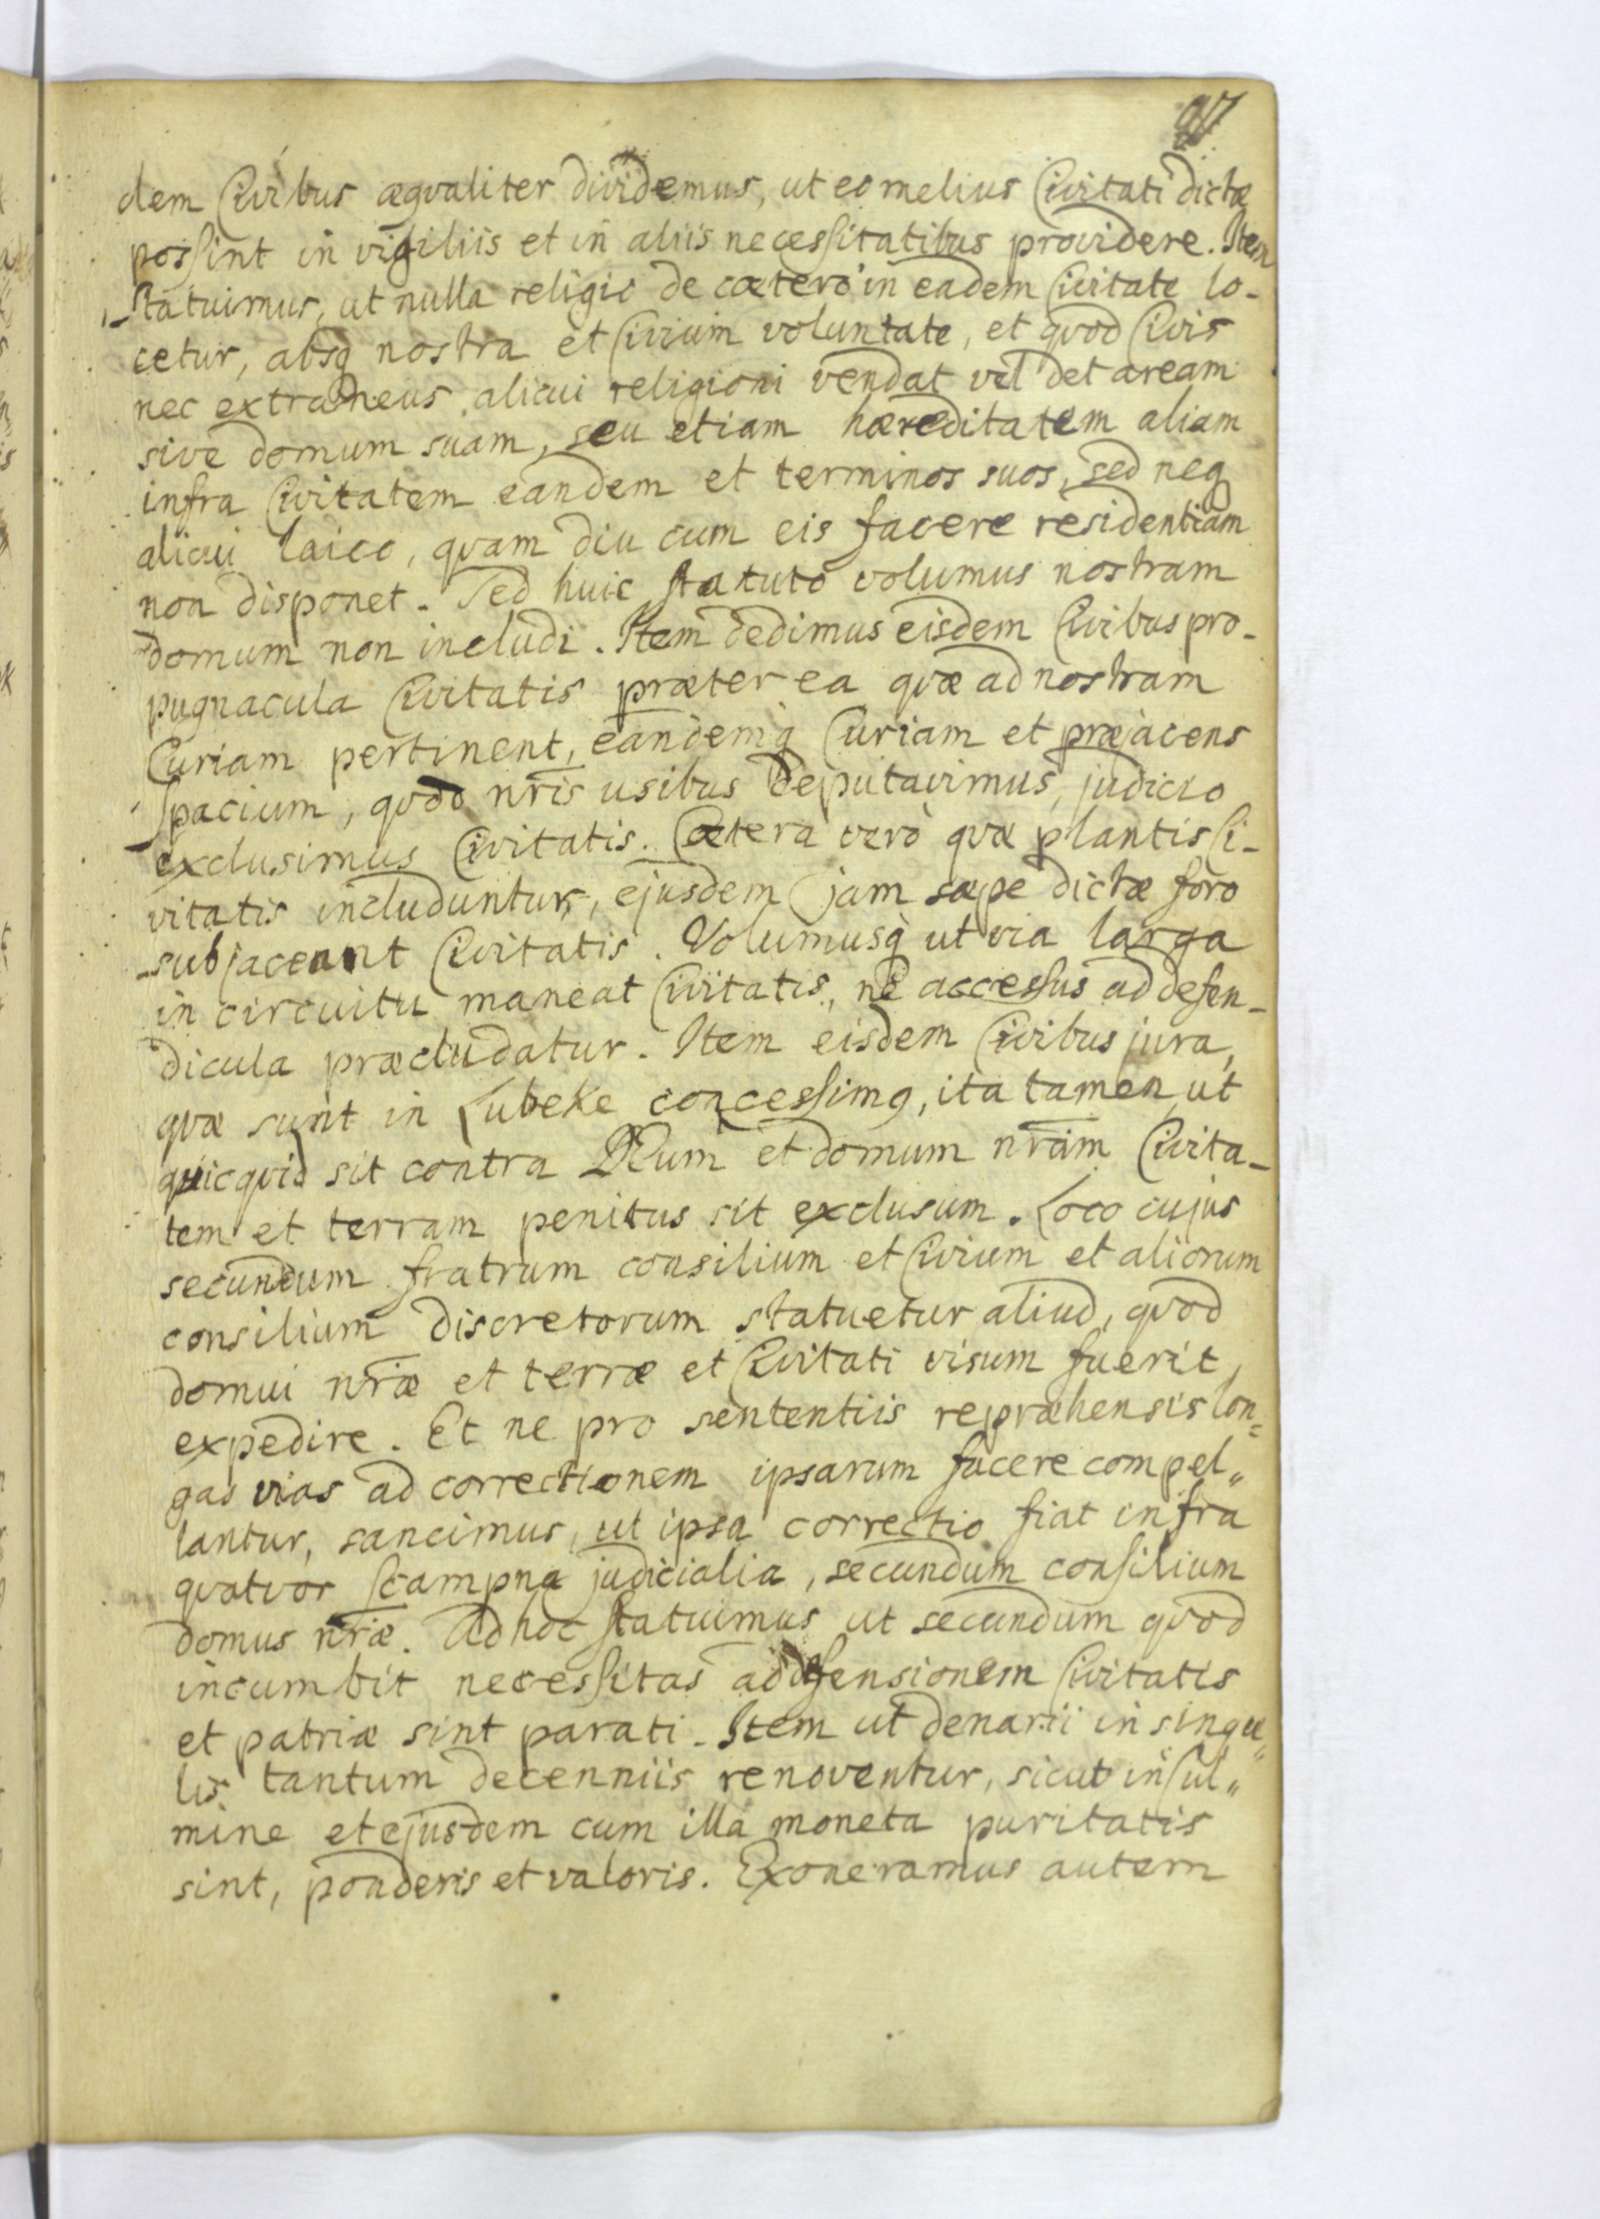 97
dem Civibus æqvaliter dividemus, ut eo melius Civitati dictæ
possint in vigiliis et in aliis necessitatibus providere. Item
statuimus, ut nulla religio de cætero in eadem Civitate lo-
cetur, absq nostra et Civium voluntate, et qvod Civis
nec extraneus alicui religioni vendat vel det aream
sive domum suam, seu etiam hæreditatem aliam
infra Civitatem eandem et terminos suos, sed neq
alicui laico, qvam diu cum eis facere residentiam
non disponet. Sed huic statuto volumus nostram
domum non includi. Item dedimus eisdem Civibus pro-
pugnacula Civitatis præter ea qvæ ad nostram
Curiam pertinent, eandemq̀ Curiam et præjacens
spacium, qvod nr̃is usibus deputavimus, judicio
exclusimus Civitatis. Cætera verò qvæ plantis Ci-
vitatis includuntur, ejusdem jam sæpe dictæ foro
subjaceant Civitatis. Volumusq̀ ut via larga
in circuitu maneat Civitatis, ne accessus ad defen-
dicula præcludatur. Item eisdem Civibus jura,
qvæ sunt in Lubeke concessimq, ita tamen ut
quicqvid sit contra DEum et domum nr̃am Civita-
tem et terram penitus sit exclusum. Loco cujus
secundum fratrum consilium et Civium et aliorum
consilium discretorum statuetur aliud, qvod
domui nr̃æ et terræ et Civitati visum fuerit
expedire. Et ne pro sententiis repræhensis lon=
gas vias ad correctionem ipsarum facere compel„
lantur, sancimus, ut ipsa correctio fiat infra
qvatvor scampna judicialia, secundum consilium
domus nr̃æ. Ad hoc statuimus ut secundum qvod
incumbit necessitas ad defensionem Civitatis
et patriæ sint parati. Item ut denarii in singu„
lis tantum decenniis renoventur, sicut in Cul„
mine et ejusdem cum illa moneta puritatis
sint, ponderis et valoris. Exoneramus autem